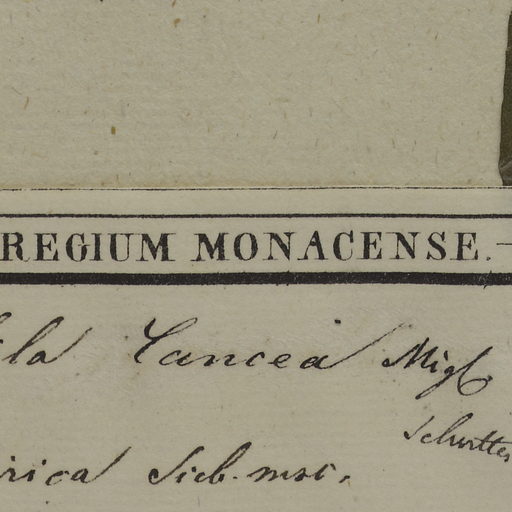 REGIUM MONACENSE.
la Cancea Migl
Schutter
rica Sieb. msc.